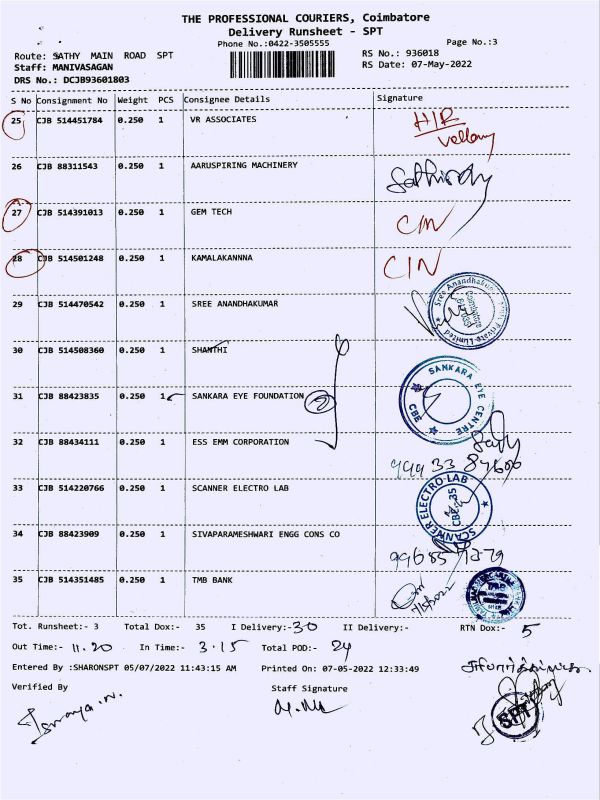 THE PROFESSIONAL COURIERS, Coimbatore
Delivery Runsheet - SPT
Phone No.:0422-3505555
Page No.:3
Route: SATHY MAIN ROAD SPT
RS No.: 936018
Staff: MANIVASAGAN
RS Date: 07-May-2022
DRS No.: DCJB93601803
S No Consignment No Weight PCS Consignee Details Signature
25 CJB 514451784 0.250 1 VR ASSOCIATES
26 CJB 88311543 0.250 1 AARUSPIRING MACHINERY
27 CJB 514391013 0.250 1 GEM TECH
28 CJB 514501248 0.250 1 KAMALAKANNNA
29 CJB 514470542 0.250 1 SREE ANANDHAKUMAR
30 CJB 514508360 0.250 1 SHANTHI
31 CJB 88423835 0.250 1 SANKARA EYE FOUNDATION 2
SANKARA EYE CENTRE CBE
32 CJB 88434111 0.250 1 ESS EMM CORPORATION
33 CJB 514220766 0.250 1 SCANNER ELECTRO LAB
SCANNER ELECTRO LAB CBE-35
34 CJB 88423909 0.250 1 SIVAPARAMESHWARI ENGG CONS CO
35 CJB 514351485 0.250 1 TMB BANK
Tot. Runsheet:- 3 Total Dox:- 35 I Delivery:-30 II Delivery:- RTN Dox:- 5
Out Time:- 11.20 In Time:- 3.15 Total POD:- 24
Entered By :SHARONSPT 05/07/2022 11:43:15 AM Printed On: 07-05-2022 12:33:49
Verified By Staff Signature
SPT